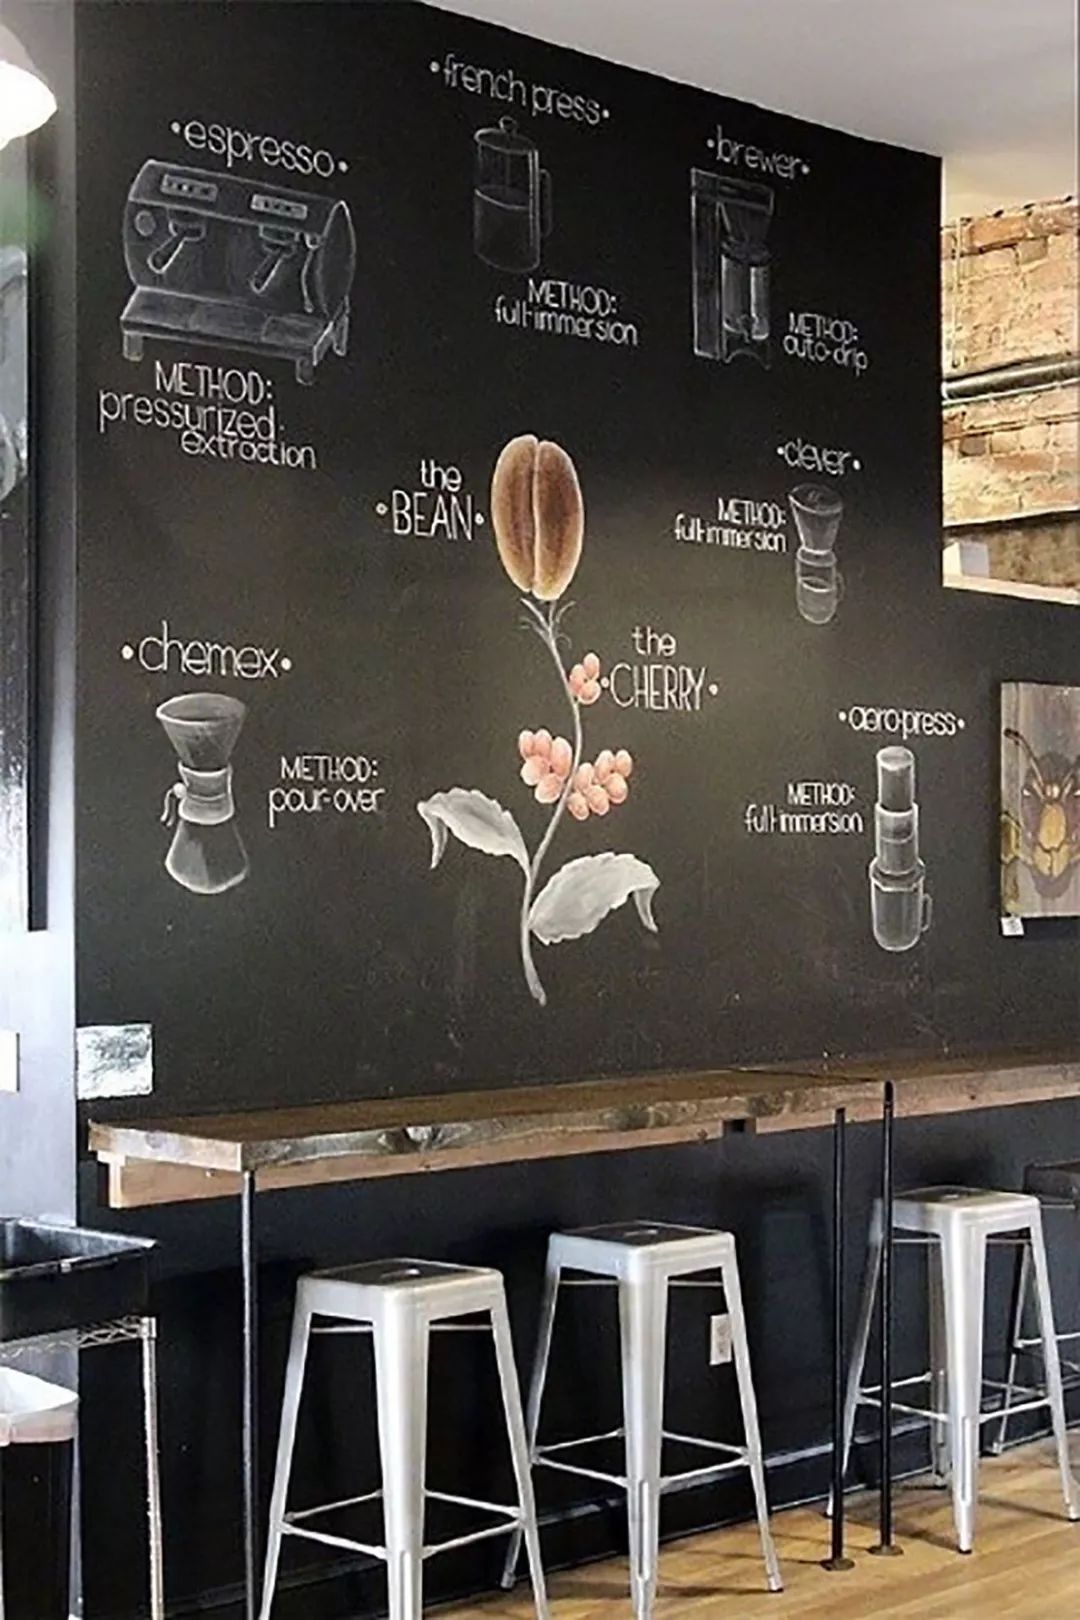 •french press•
METHOD:
full-immersion
•espresso•
METHOD:
pressurized
extraction
•brewer•
METHOD:
auto-drip
the
•BEAN•
•clever•
METHOD:
full-immersion
•chemex•
METHOD:
pour-over
the
•CHERRY•
•aero-press•
METHOD:
full-immersion